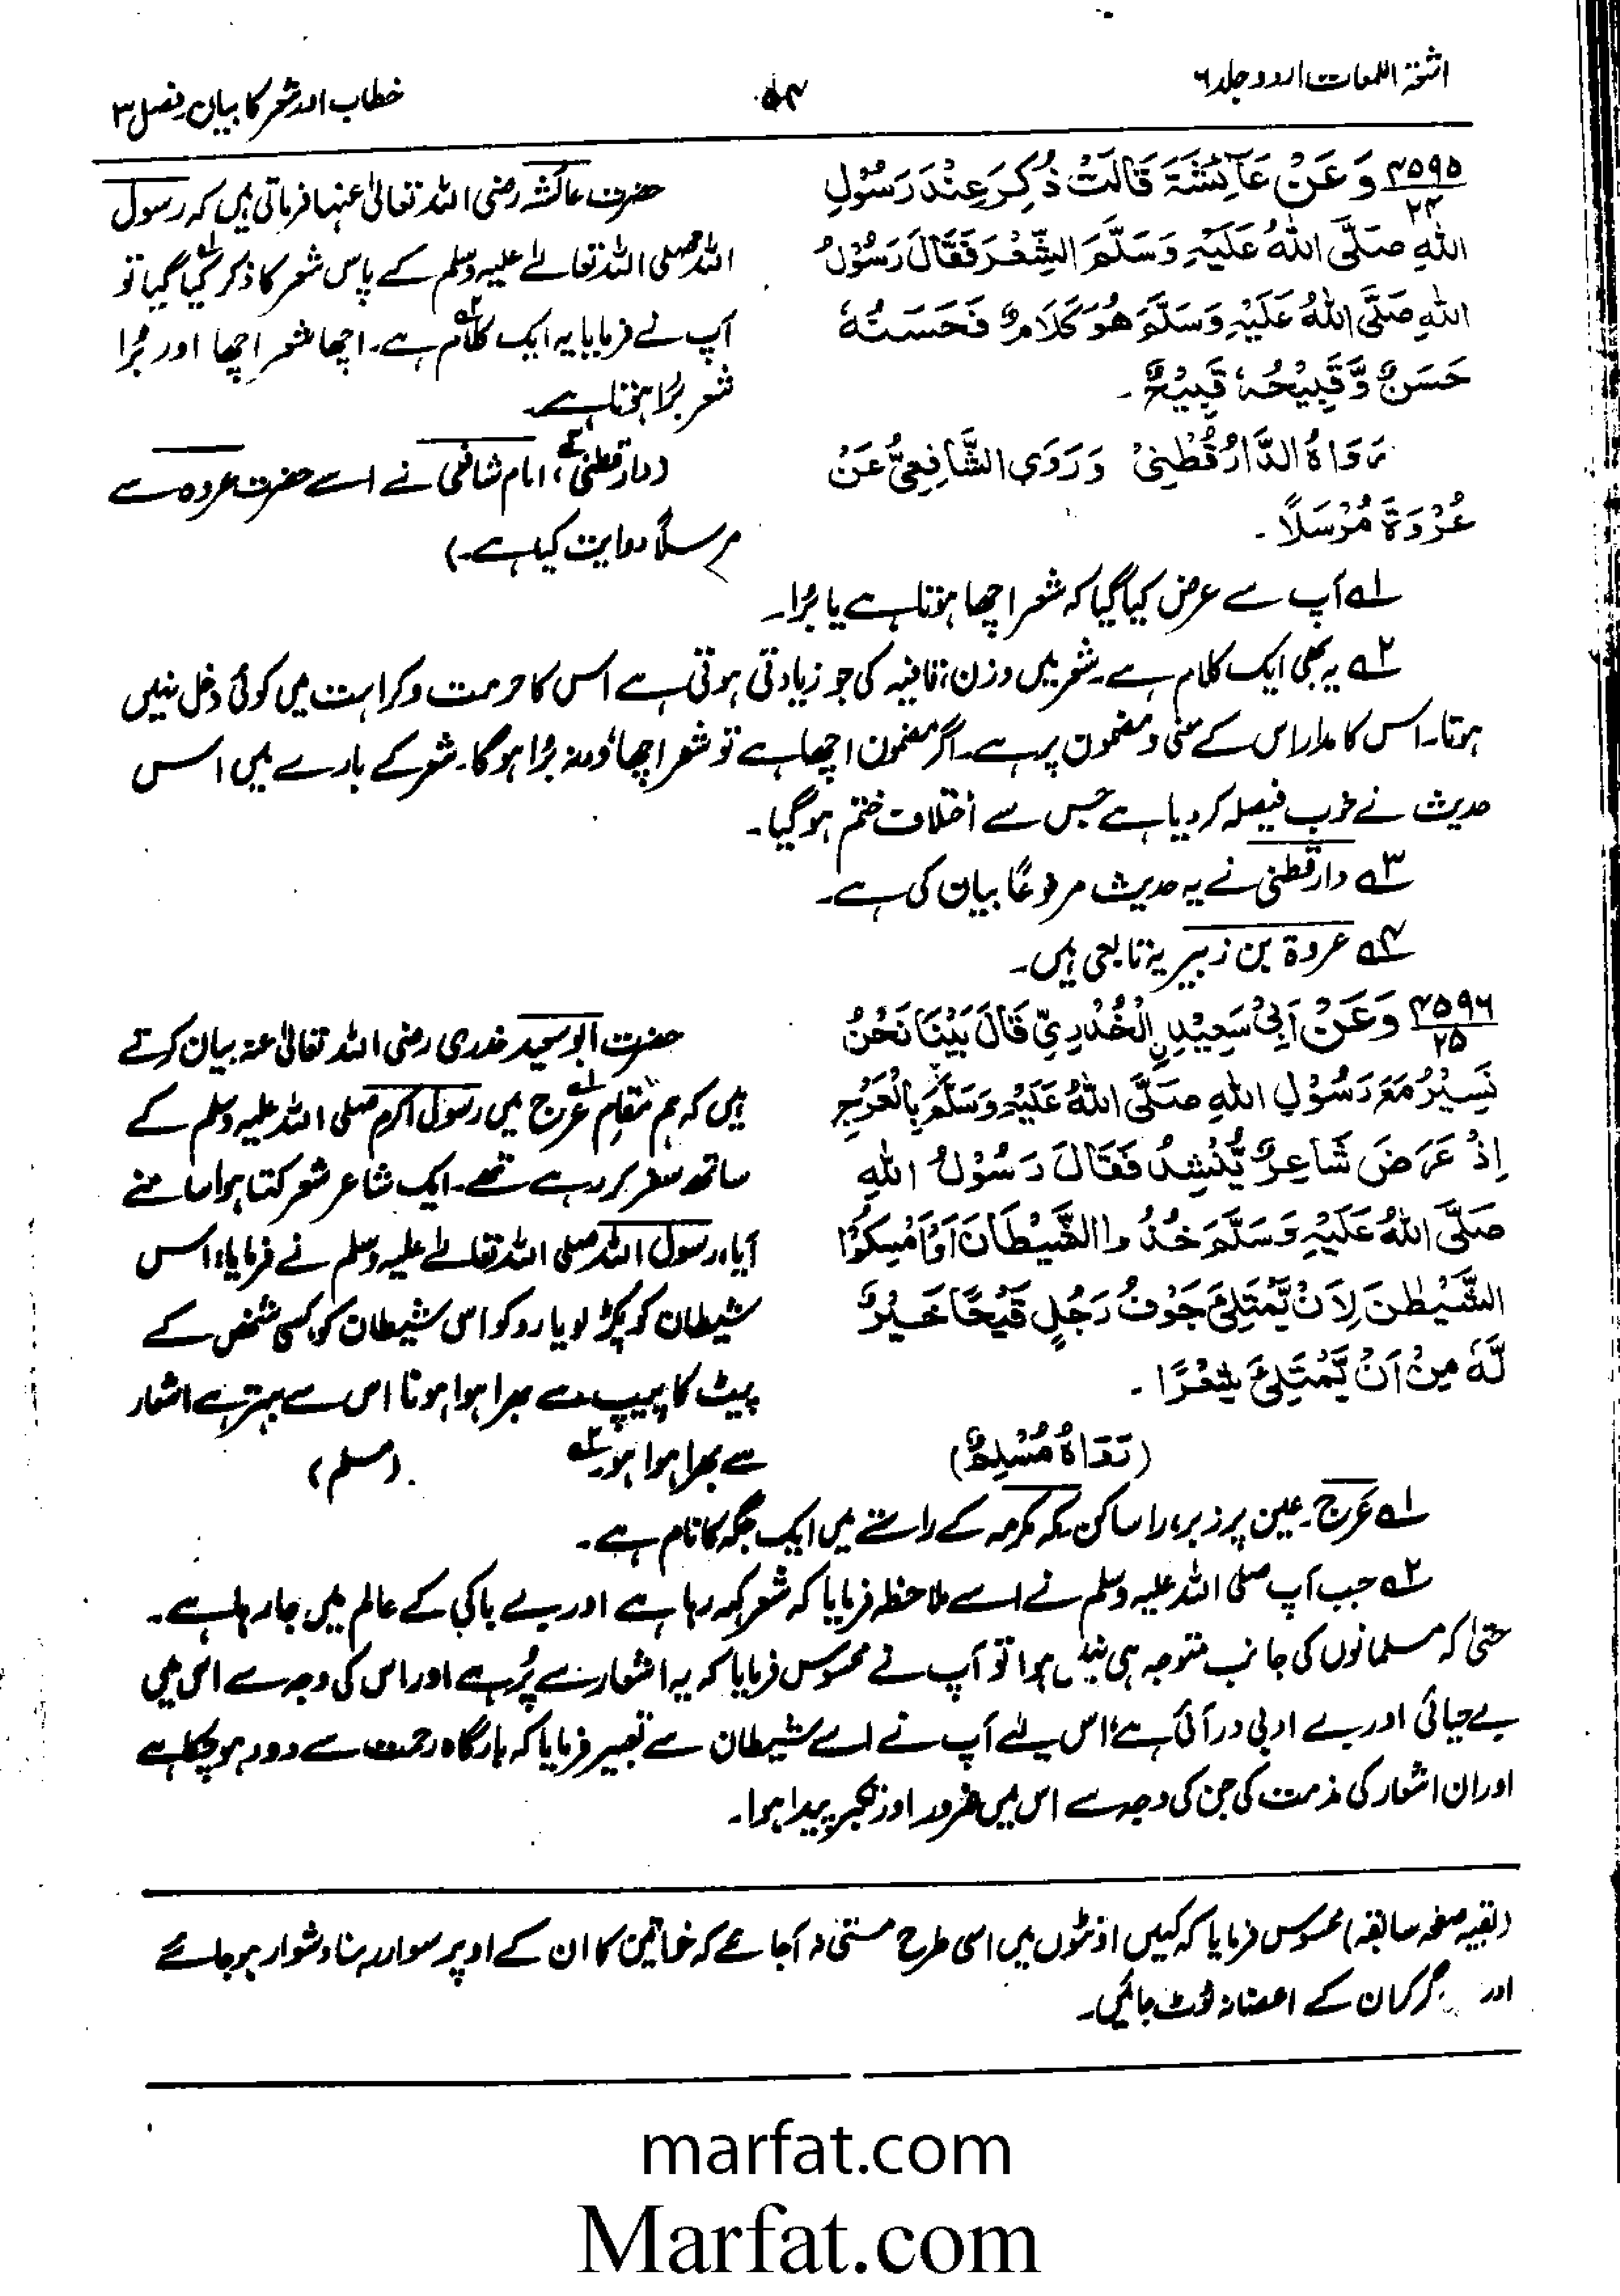 اشعۃ اللمعات اردو جلد ۶
۵۴
خطاب اور شعر کا بیان، فصل ۳
۴۵۹۵ وَعَنْ عَآئِشَۃَ قَالَتْ ذُکِرَ عِنْدَ رَسُوْلِ
۲۴
اللّٰہِ صَلَّی اللّٰہُ عَلَیْہِ وَسَلَّمَ الشِّعْرَ فَقَالَ رَسُوْلُ
اللّٰہِ صَلَّی اللّٰہُ عَلَیْہِ وَسَلَّمَ ھُوَ کَلَامٌ فَحَسَنُہٗ
حَسَنٌ وَّقَبِیْحُہٗ قَبِیْحٌ۔
رَوَاہُ الدَّارُقُطْنِیْ وَرَوَی الشَّافِعِیُّ عَنْ
عُرْوَۃَ مُرْسَلًا۔
حضرت عائشہ رضی اللہ تعالیٰ عنہا فرماتی ہیں کہ رسول
اللہ صلی اللہ تعالےٰ علیہ وسلم کے پاس شعر کا ذکر کیا۱ گیا تو
آپ نے فرمایا یہ ایک کلام۲ ہے۔ اچھا شعر اچھا اور بُرا
شعر بُرا ہوتا ہے۔
(دارقطنی۳، امام شافعی نے اسے حضرت عروہ سے
مرسلًا روایت کیا ہے۔)
۱؎ آپ سے عرض کیا گیا کہ شعر اچھا ہوتا ہے یا بُرا۔
۲؎ یہ بھی ایک کلام ہے۔ شعر میں وزن، قافیہ کی جو زیادتی ہوتی ہے اس کا حرمت و کراہت میں کوئی دخل نہیں
ہوتا۔ اس کا مدار اس کے معنی و مضمون پر ہے۔ اگر مضمون اچھا ہے تو شعر اچھا ورنہ بُرا ہوگا۔ شعر کے بارے میں اس
حدیث نے خوب فیصلہ کر دیا ہے جس سے اختلاف ختم ہوگیا۔
۳؎ دارقطنی نے یہ حدیث مرفوعًا بیان کی ہے۔
۴؎ عروۃ بن زبیر یہ تابعی ہیں۔
۴۵۹۶ وَعَنْ اَبِیْ سَعِیْدِنِ الْخُدْرِیِّ قَالَ بَیْنَا نَحْنُ
۲۵
نَسِیْرُ مَعَ رَسُوْلِ اللّٰہِ صَلَّی اللّٰہُ عَلَیْہِ وَسَلَّمَ بِالْعَرْجِ
اِذْ عَرَضَ شَاعِرٌ یُّنْشِدُ فَقَالَ رَسُوْلُ اللّٰہِ
صَلَّی اللّٰہُ عَلَیْہِ وَسَلَّمَ خُذُوا الشَّیْطَانَ اَوْ اَمْسِکُوْا
الشَّیْطٰنَ لِاَنْ یَّمْتَلِیَٔ جَوْفُ رَجُلٍ قَیْحًا خَیْرٌ
لَّہٗ مِنْ اَنْ یَّمْتَلِیَٔ شِعْرًا۔
(رَوَاہُ مُسْلِمٌ)
حضرت ابو سعید خدری رضی اللہ تعالیٰ عنہ بیان کرتے
ہیں کہ ہم مقام عرج۱ میں رسول اکرم صلی اللہ علیہ وسلم کے
ساتھ سفر کر رہے تھے۔ ایک شاعر شعر کہتا ہوا سامنے
آیا، رسول اللہ صلی اللہ تعالےٰ علیہ وسلم نے فرمایا، اس
شیطان کو پکڑ لو یا روکو اس شیطان کو، کسی شخص کے
پیٹ کا پیپ سے بھرا ہوا ہونا اس سے بہتر ہے اشعار
سے بھرا ہوا ہو۔۲؎ (مسلم)
۱؎ عَرْج۔ عین پر زبر، را ساکن، مکہ مکرمہ کے راستے میں ایک جگہ کا نام ہے۔
۲؎ جب آپ صلی اللہ علیہ وسلم نے اسے ملاحظہ فرمایا کہ شعر کہہ رہا ہے اور بے باکی کے عالم میں جا رہا ہے۔
حتیٰ کہ مسلمانوں کی جانب متوجہ ہی نہیں ہوا تو آپ نے محسوس فرمایا کہ یہ اشعار سے پُر ہے اور اس کی وجہ سے اس میں
بے حیائی اور بے ادبی در آئی ہے، اس لیے آپ نے اسے شیطان سے تعبیر فرمایا کہ بارگاہ رحمت سے دور ہو چکا ہے
اور ان اشعار کی مذمت کی جن کی وجہ سے اس میں غرور اور تکبر پیدا ہوا۔
(بقیہ صفحہ سابقہ) محسوس فرمایا کہ کہیں اونٹوں میں اسی طرح مستی نہ آجائے کہ خواتین کا ان کے اوپر سوار رہنا دشوار ہو جائے
اور گر کر ان کے اعضاء نہ ٹوٹ جائیں۔
marfat.com
Marfat.com